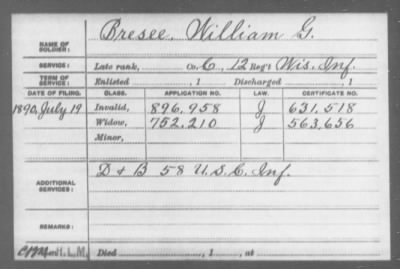 NAME OF SOLDIER: Bresee, William G.
SERVICE: Late rank, Co. C, 12 Reg't Wis. Inf.
TERM OF SERVICE: Enlisted , 1 Discharged , 1
DATE OF FILING. CLASS. APPLICATION NO. LAW. CERTIFICATE NO.
1890, July 19 Invalid, 896,958 J 631,518
Widow, 752,210 J 563,656
Minor,
ADDITIONAL SERVICES: D & B 58 U.S.C. Inf.
REMARKS:
H.L.M. Died , 1 , at